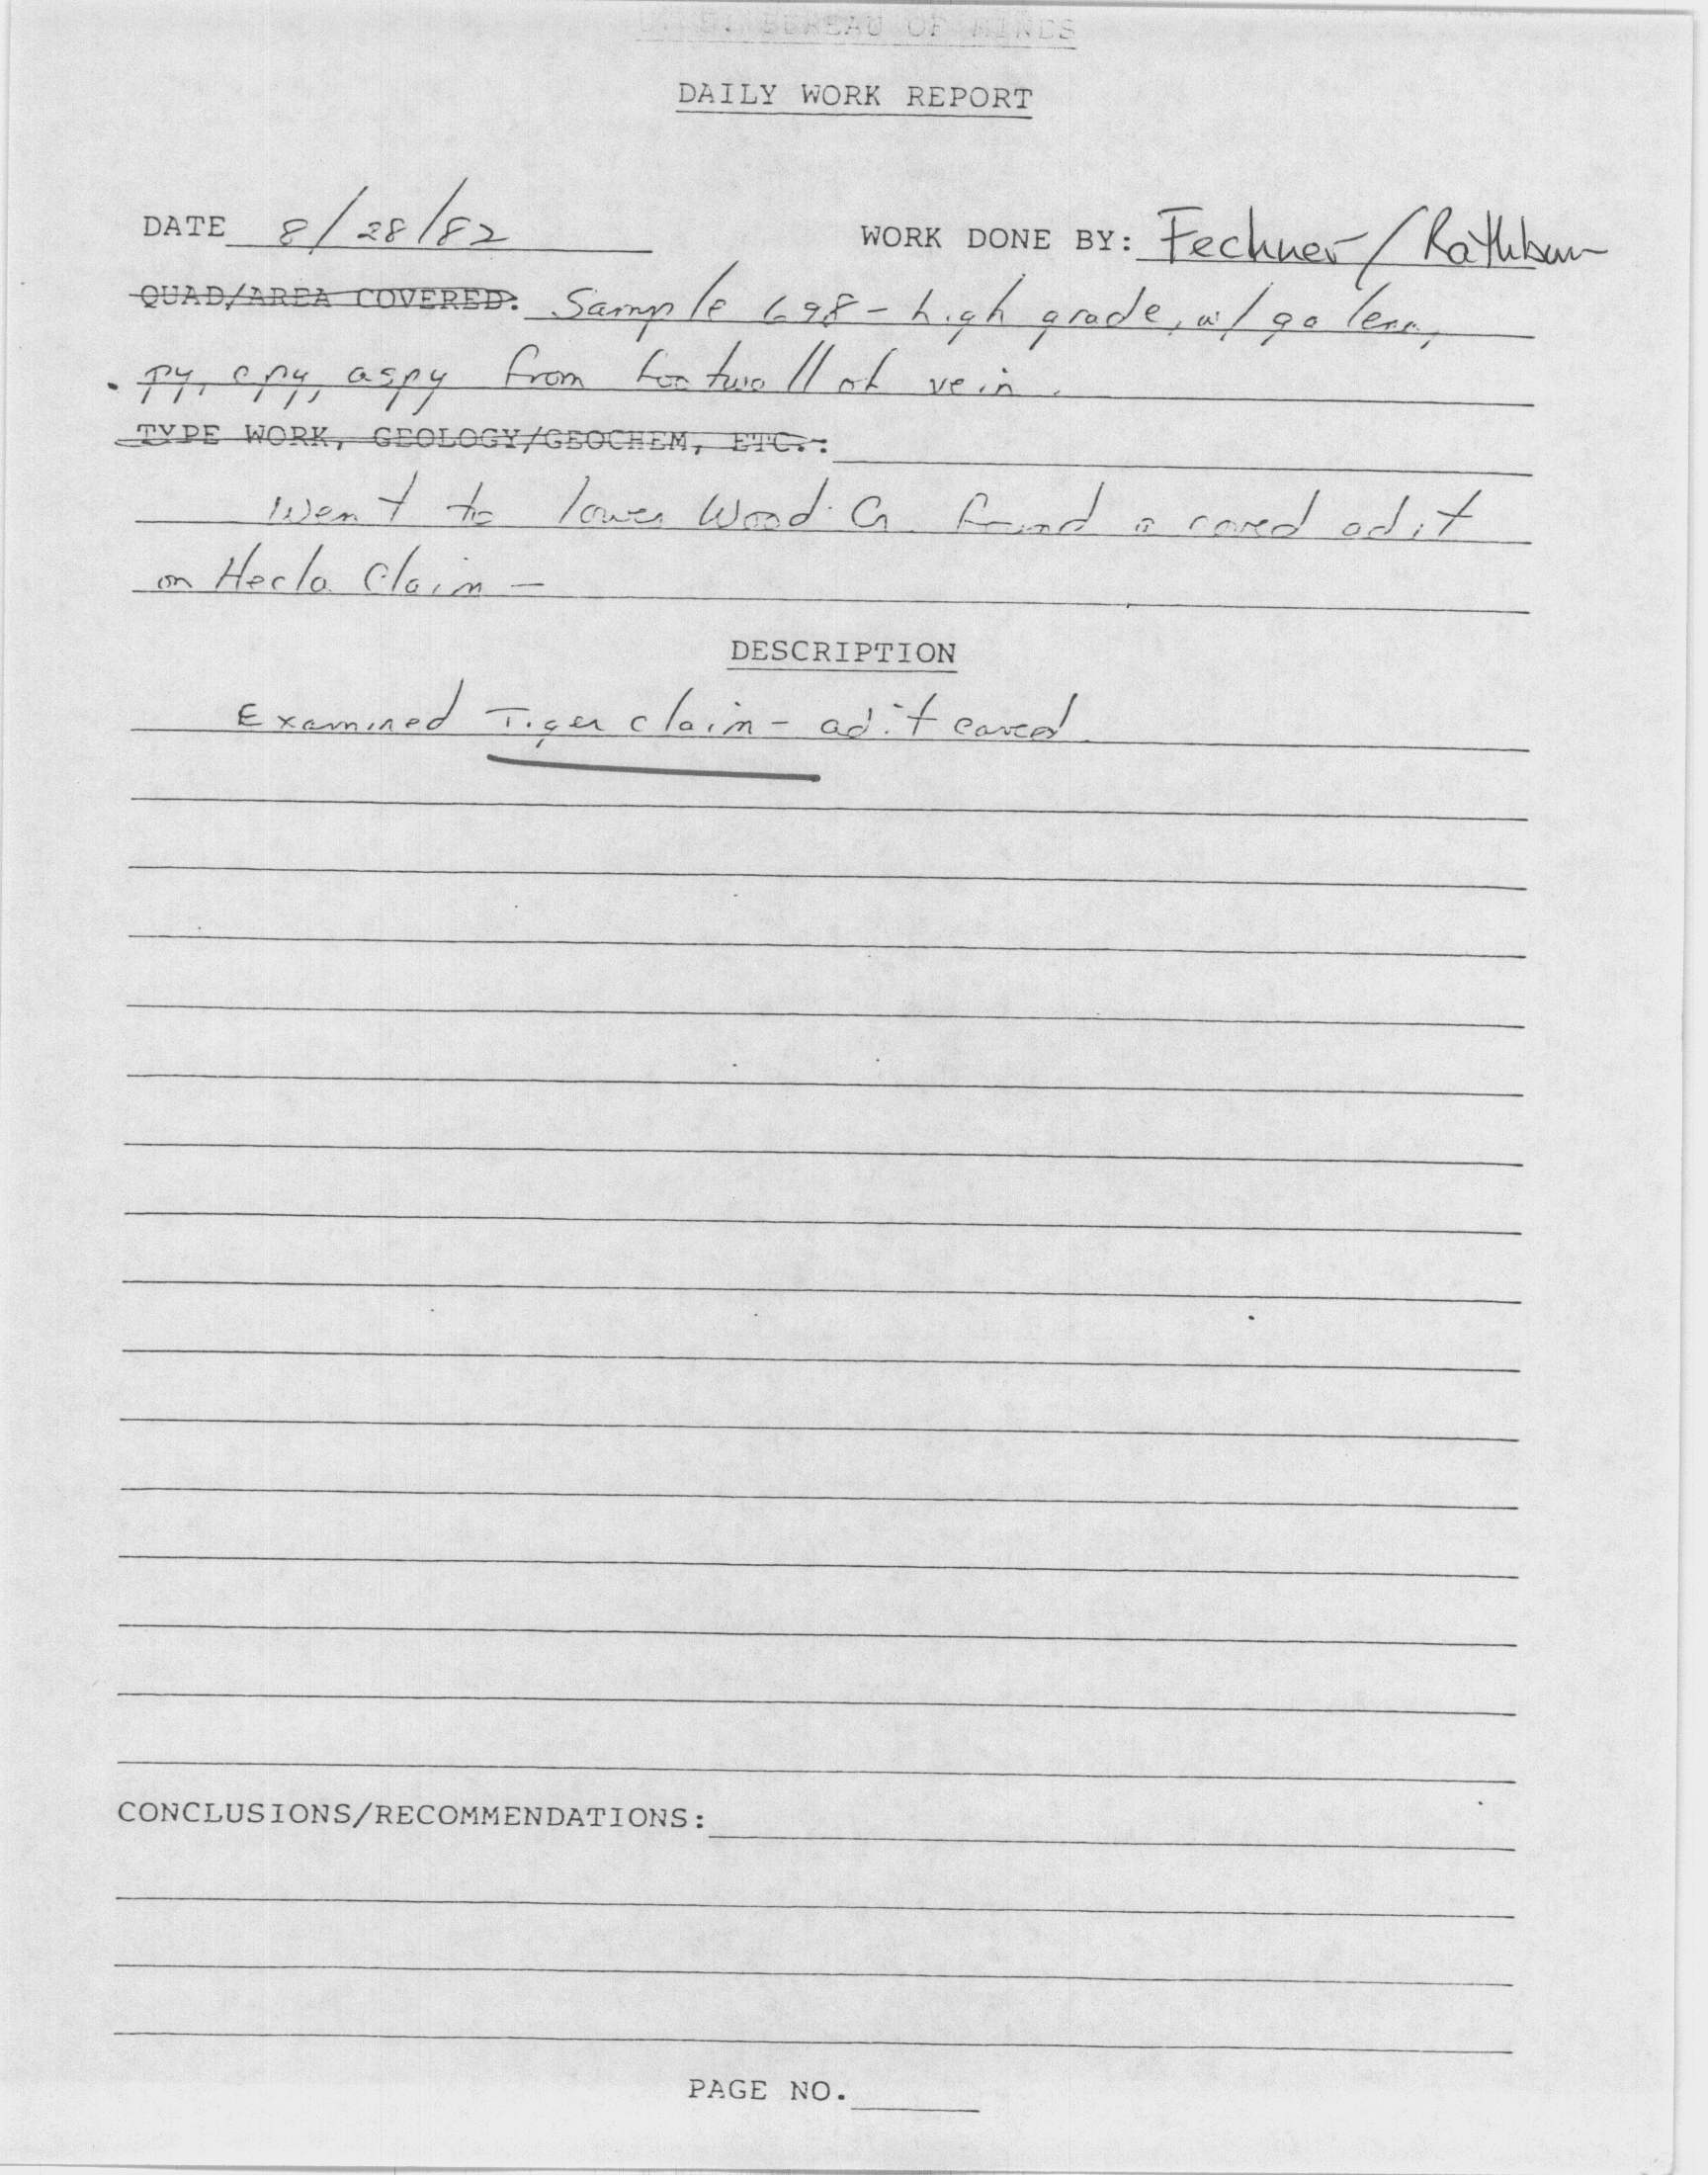 U. S. BUREAU OF MINES
DAILY WORK REPORT
DATE 8/28/82 WORK DONE BY: Fechner/Rathbun
QUAD/AREA COVERED: Sample 698 - high grade, w/ galena,
py, cpy, aspy from footwall of vein.
TYPE WORK, GEOLOGY/GEOCHEM, ETC.:
Went to lower Wood Cr. found a caved adit
on Hecla Claim -
DESCRIPTION
Examined Tiger claim - adit caved
CONCLUSIONS/RECOMMENDATIONS:
PAGE NO.